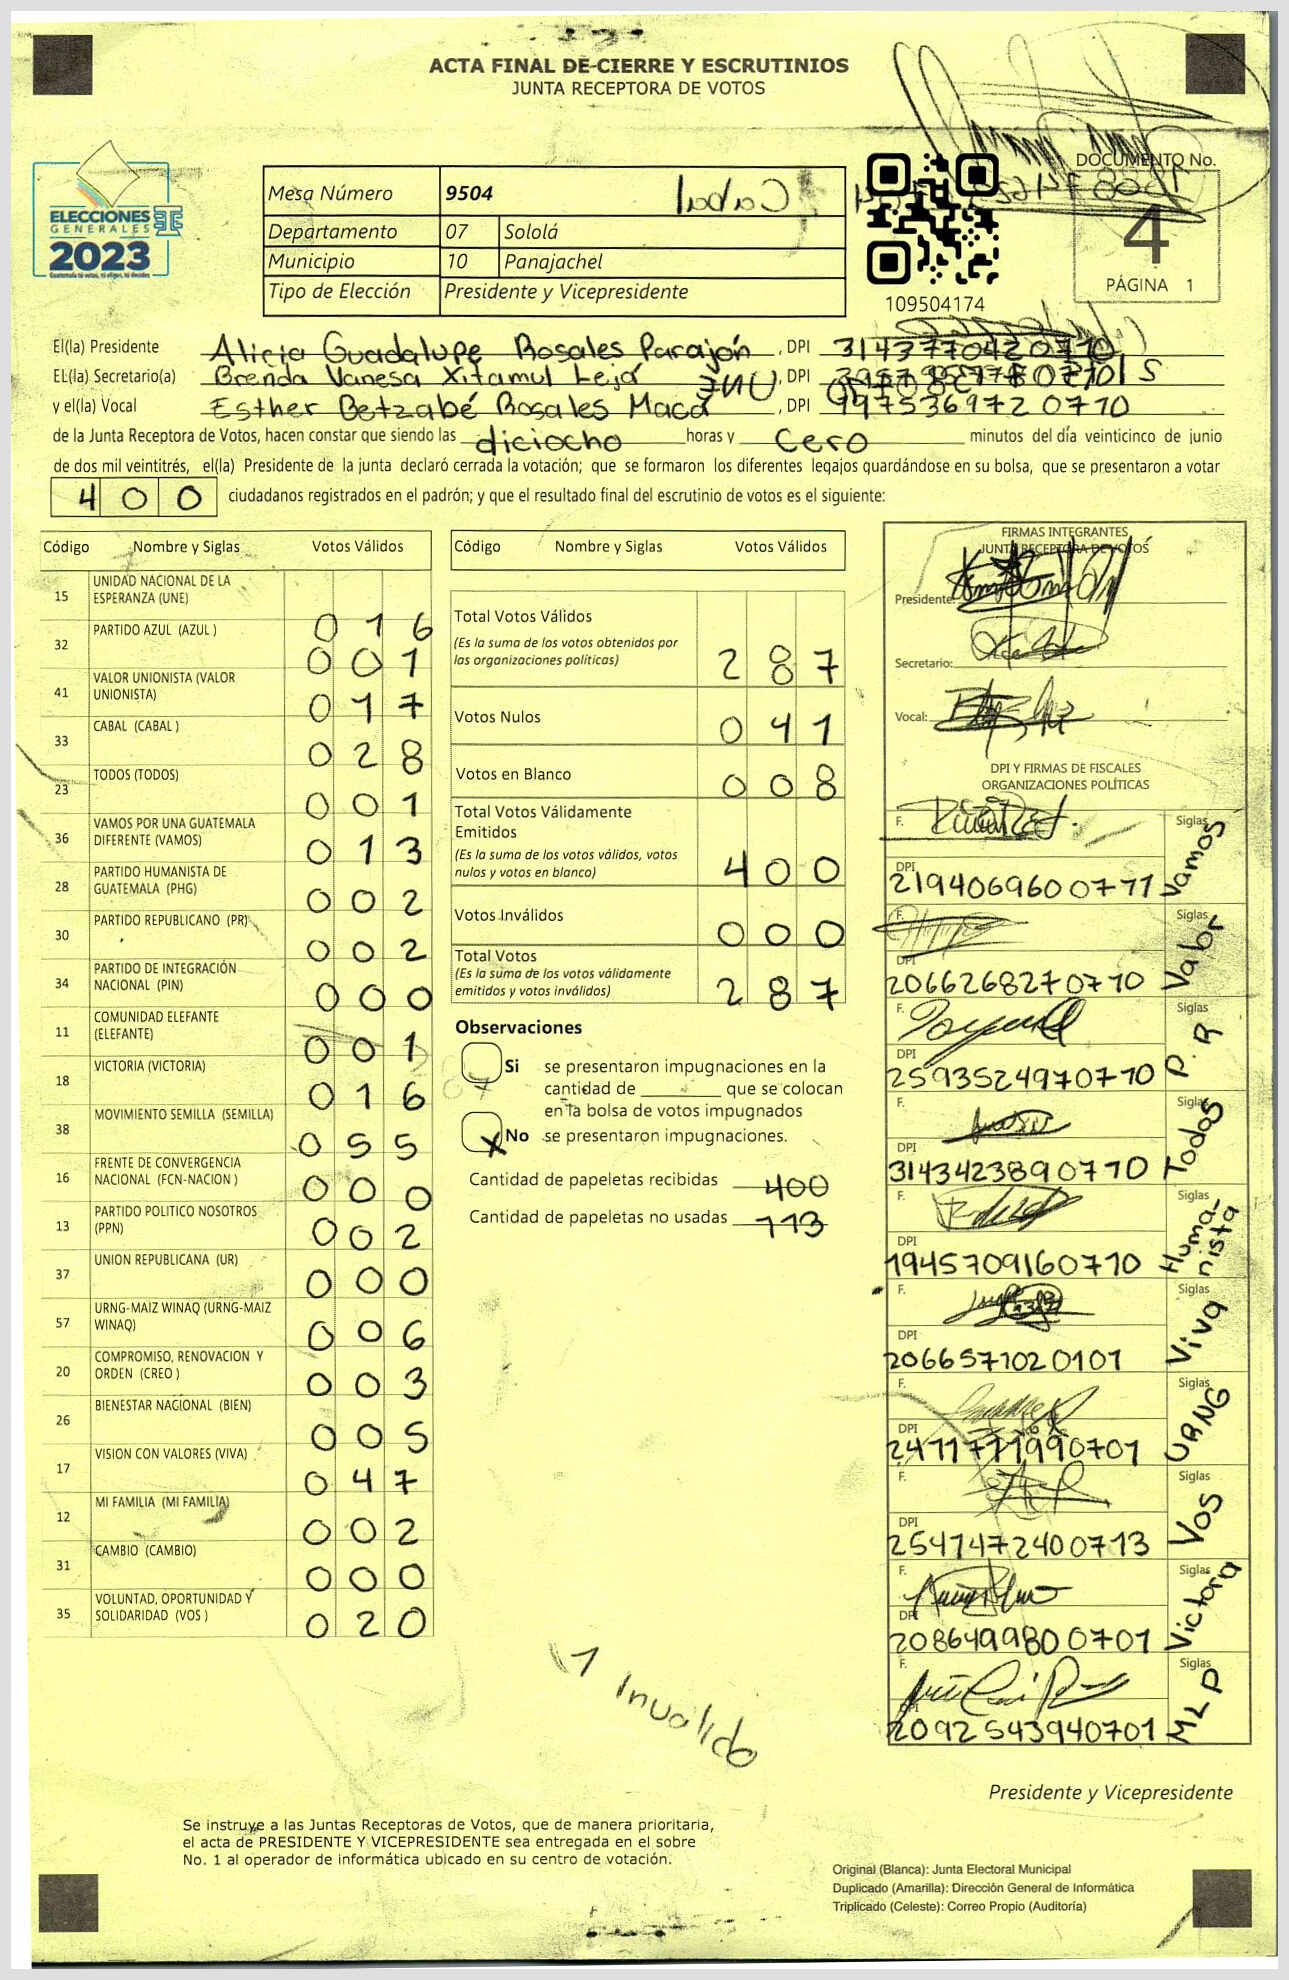 ACTA FINAL DE CIERRE Y ESCRUTINIOS
JUNTA RECEPTORA DE VOTOS
DOCUMENTO No.
4
PÁGINA 1
ELECCIONES
GENERALES
2023
Guatemala tú votas, tú eliges, tú decides
Mesa Número 9504
Departamento 07 Sololá
Municipio 10 Panajachel
Tipo de Elección Presidente y Vicepresidente
109504174
El(la) Presidente Alicia Guadalupe Rosales Parajón , DPI 3143770420710
EL(la) Secretario(a) Brenda Vanesa Xitamul Lejá , DPI
y el(la) Vocal Esther Betzabé Rosales Macá , DPI 1997536972 0710
de la Junta Receptora de Votos, hacen constar que siendo las diciocho horas y cero minutos del día veinticinco de junio
de dos mil veintitrés, el(la) Presidente de la junta declaró cerrada la votación; que se formaron los diferentes legajos guardándose en su bolsa, que se presentaron a votar
400 ciudadanos registrados en el padrón; y que el resultado final del escrutinio de votos es el siguiente:
Código Nombre y Siglas Votos Válidos
15 UNIDAD NACIONAL DE LA ESPERANZA (UNE) 016
32 PARTIDO AZUL (AZUL ) 001
41 VALOR UNIONISTA (VALOR UNIONISTA) 017
33 CABAL (CABAL ) 028
23 TODOS (TODOS) 001
36 VAMOS POR UNA GUATEMALA DIFERENTE (VAMOS) 013
28 PARTIDO HUMANISTA DE GUATEMALA (PHG) 002
30 PARTIDO REPUBLICANO (PR) 002
34 PARTIDO DE INTEGRACIÓN NACIONAL (PIN) 000
11 COMUNIDAD ELEFANTE (ELEFANTE) 001
18 VICTORIA (VICTORIA) 016
38 MOVIMIENTO SEMILLA (SEMILLA) 055
16 FRENTE DE CONVERGENCIA NACIONAL (FCN-NACION ) 000
13 PARTIDO POLITICO NOSOTROS (PPN) 002
37 UNION REPUBLICANA (UR) 000
57 URNG-MAIZ WINAQ (URNG-MAIZ WINAQ) 006
20 COMPROMISO, RENOVACION Y ORDEN (CREO ) 003
26 BIENESTAR NACIONAL (BIEN) 005
17 VISION CON VALORES (VIVA) 047
12 MI FAMILIA (MI FAMILIA) 002
31 CAMBIO (CAMBIO) 000
35 VOLUNTAD, OPORTUNIDAD Y SOLIDARIDAD (VOS ) 020
Código Nombre y Siglas Votos Válidos
Total Votos Válidos 287
(Es la suma de los votos obtenidos por
las organizaciones políticas)
Votos Nulos 041
Votos en Blanco 008
Total Votos Válidamente
Emitidos
(Es la suma de los votos válidos, votos
nulos y votos en blanco) 400
Votos Inválidos 000
Total Votos
(Es la suma de los votos válidamente
emitidos y votos inválidos) 287
Observaciones
Si se presentaron impugnaciones en la
cantidad de ________ que se colocan
en la bolsa de votos impugnados
X No se presentaron impugnaciones.
Cantidad de papeletas recibidas 400
Cantidad de papeletas no usadas 113
1 Invalido
FIRMAS INTEGRANTES
JUNTA RECEPTORA DE VOTOS
Presidente:
Secretario:
Vocal:
DPI Y FIRMAS DE FISCALES
ORGANIZACIONES POLÍTICAS
F. Siglas Vamos
DPI 2194069600771
F. Siglas Valor
DPI 2066268270710
F. Siglas P.R
DPI 2593524970710
F. Siglas Todos
DPI 3143423890710
F. Siglas Humanista
DPI 1945709160710
F. Siglas Viva
DPI 2066571020101
F. Siglas URNG
DPI 2471771990701
F. Siglas Vos
DPI 2547472400713
F. Siglas Victoria
DPI 2086499800701
F. Siglas MLP
DPI 2092543940701
Presidente y Vicepresidente
Se instruye a las Juntas Receptoras de Votos, que de manera prioritaria,
el acta de PRESIDENTE Y VICEPRESIDENTE sea entregada en el sobre
No. 1 al operador de informática ubicado en su centro de votación.
Original (Blanca): Junta Electoral Municipal
Duplicado (Amarilla): Dirección General de Informática
Triplicado (Celeste): Correo Propio (Auditoría)